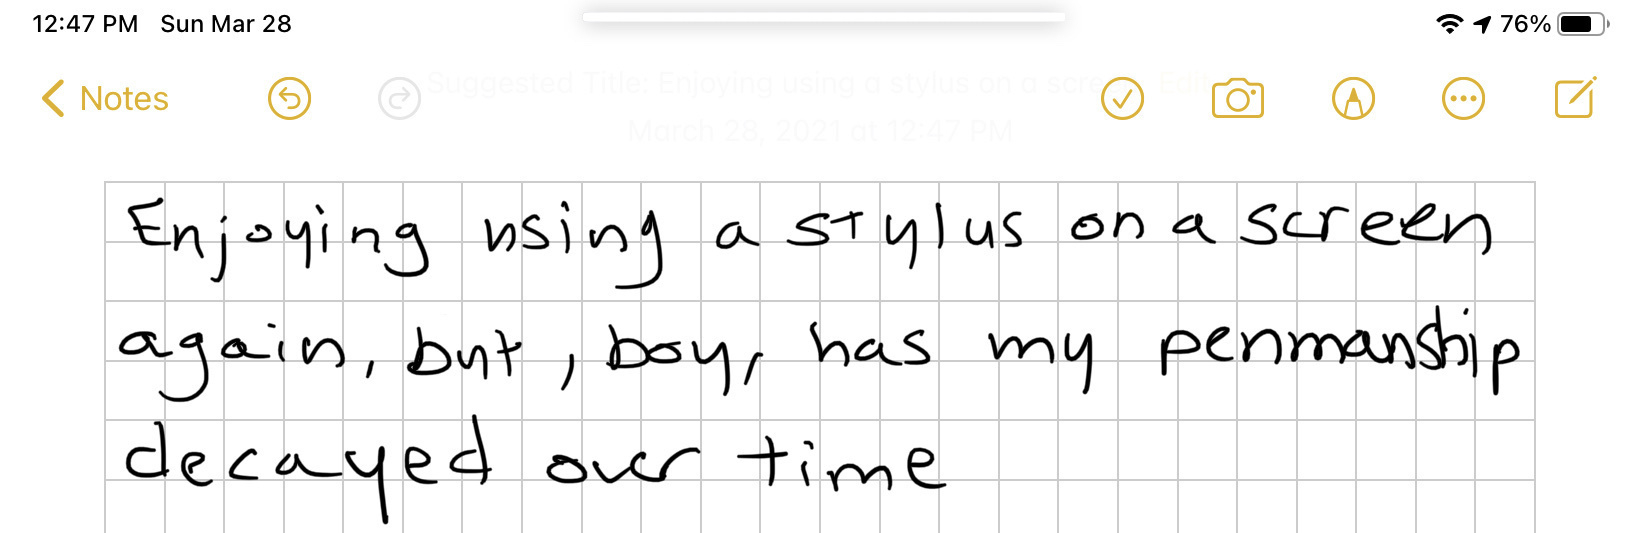 12:47 PM Sun Mar 28 76%
Notes Suggested Title: Enjoying using a stylus on a screen Edit
March 28, 2021 at 12:47 PM
Enjoying using a stylus on a screen
again, but, boy, has my penmanship
decayed over time